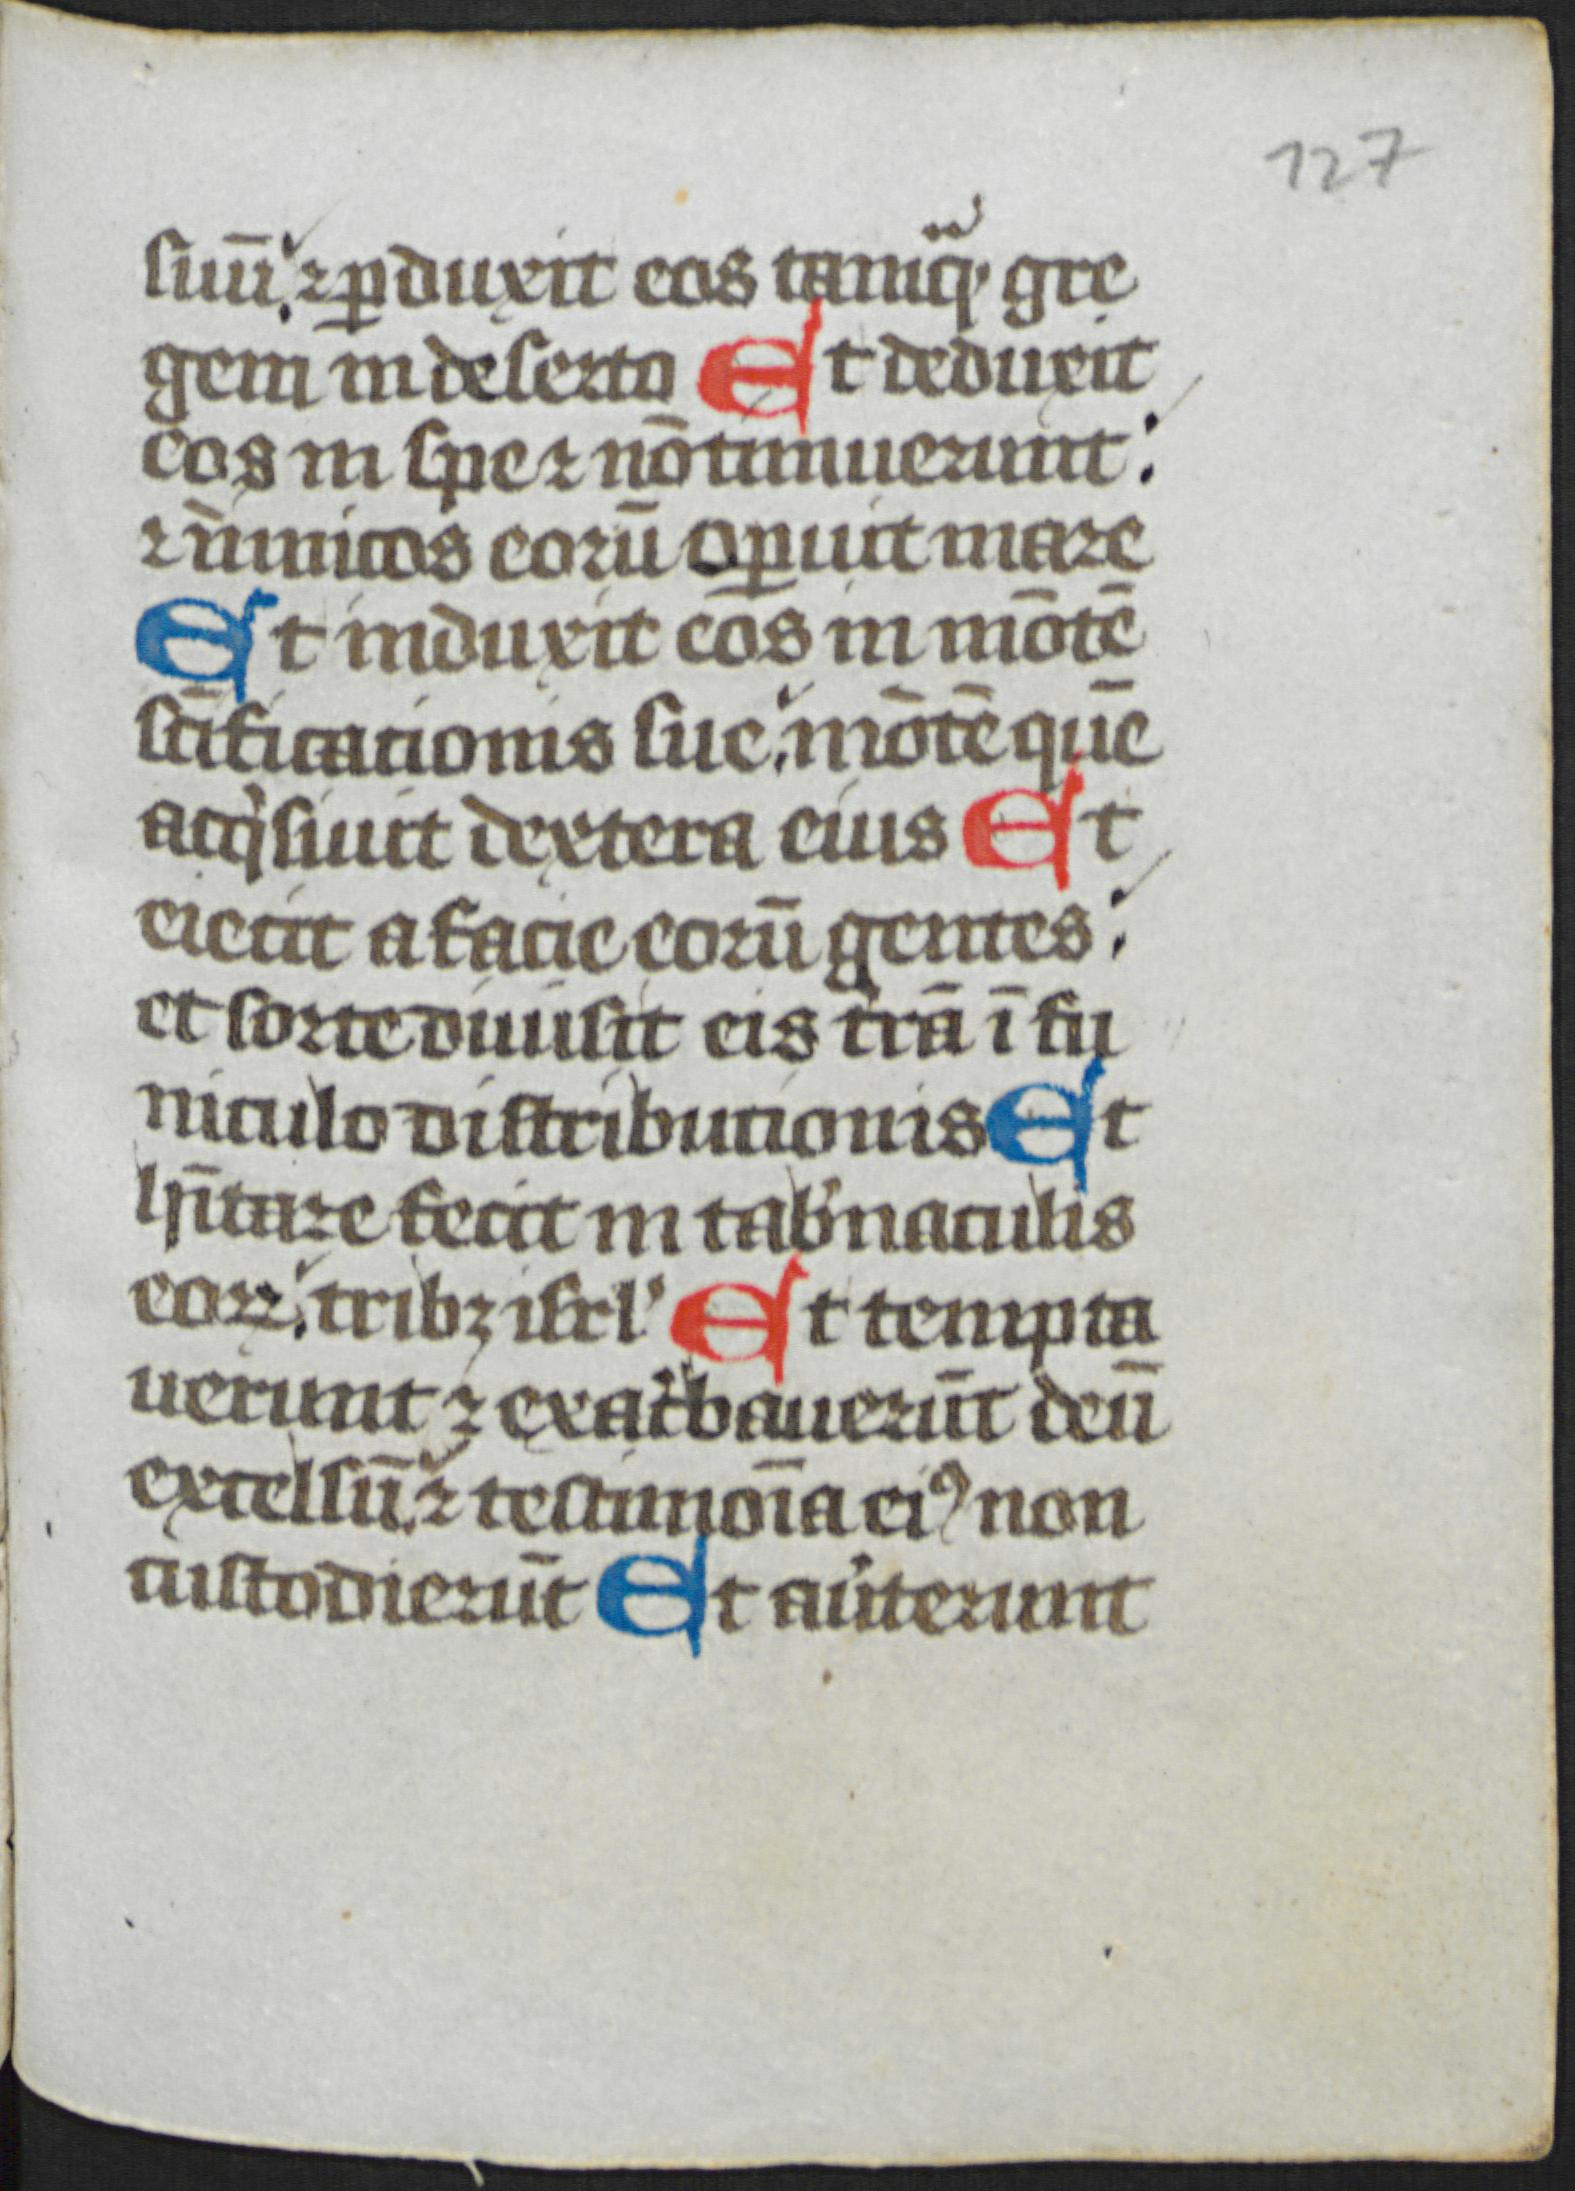 127
suū. ⁊ ꝑduxit eos tamqͣ gre
gem in deserto Et deduxit
eos in spe ⁊ nō timuerunt:
⁊ īnimicos eorū oꝑuit mare
Et induxit eos in mōtē
scīficationis sue. mōtē quē
acqͥsiuit dextera eius Et
eiecit a facie eorū gentes:
et sorte diuisit eis t̄rā ī fu
niculo distributionis Et
hītare fecit in tab̕naculis
eoꝝ. tribꝫ isrl̕ Et tempta
uerunt ⁊ exac̕bauerūt deū
excelsū. ⁊ testimoīa eiꝰ non
custodierūt Et au̕terunt